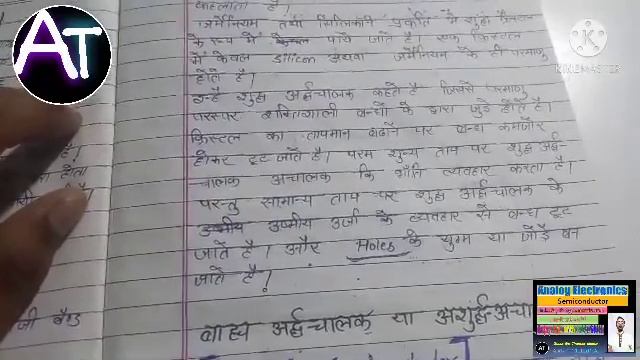 कहलाता है।
जर्मेनियम तथा सिलिकॉन प्रकृति में शुद्ध क्रिस्टल
के रूप में पाये जाते है। एक क्रिस्टल
में केवल Silicon अथवा जर्मेनियम के ही परमाणु
होते है।
इन्हें शुद्ध अर्द्धचालक कहते है जिसमें परमाणु
परस्पर शक्तिशाली बन्धों के द्वारा जुड़े होते है।
क्रिस्टल का तापमान बढाने पर बन्ध कमजोर
होकर टूट जाते है। परम शून्य ताप पर शुद्ध अर्द्ध-
चालक अचालक कि भाँति व्यवहार करता है।
परन्तु सामान्य ताप पर शुद्ध अर्द्धचालक के
उष्मीय उर्जा के व्यवहार से बन्ध टूट
जाते है। और Holes के युग्म या जोड़े बन
जाते है।
बाह्य अर्द्धचालक या अशुद्ध अचा
AT
KINEMASTER
Analog Electronics
Semiconductor
AT